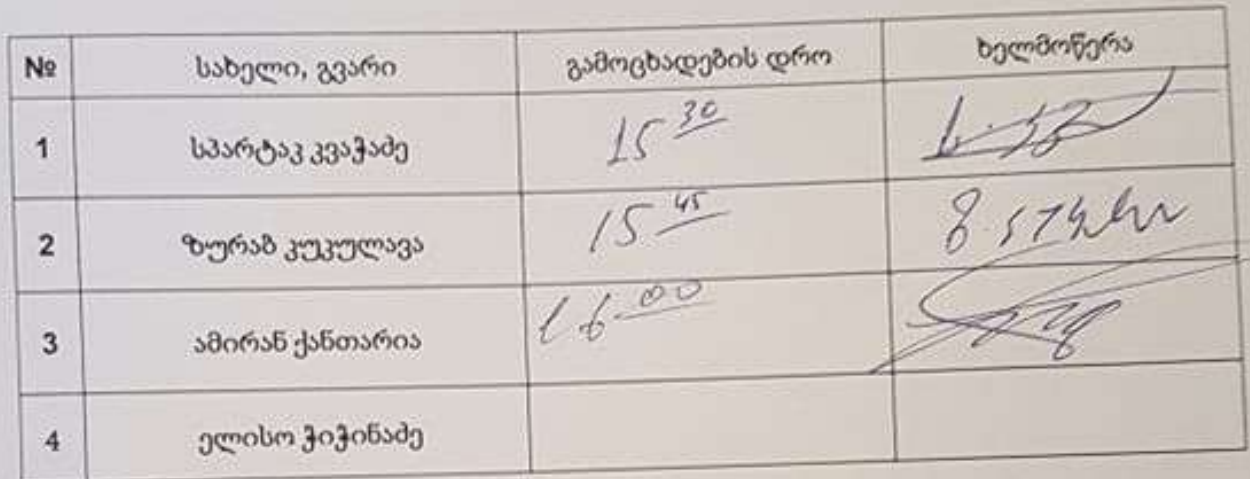 № სახელი, გვარი გამოცხადების დრო ხელმოწერა
1 სპარტაკ კვაჭაძე 15 30
2 ზურაბ კუკულავა 15 45
3 ამირან ქანთარია 16 00
4 ელისო ჭიჭინაძე